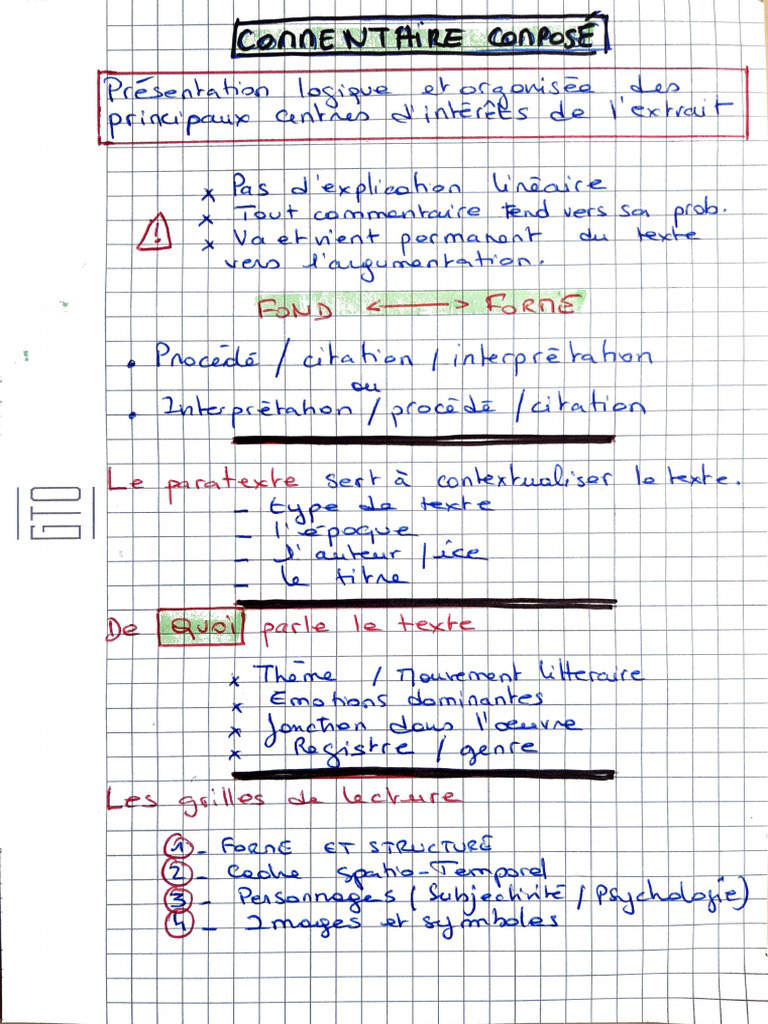 COMMENTAIRE COMPOSÉ
Présentation logique et organisée des
principaux centres d'intérêts de l'extrait
* Pas d'explication linéaire
* Tout commentaire tend vers sa prob.
* Va et vient permanent du texte
vers l'argumentation.
FOND <——> FORME
• Procédé / citation / interprétation
ou
• Interprétation / procédé / citation
Le paratexte sert à contextualiser le texte.
- type de texte
- l'époque
- l'auteur / ice
- le titre
De Quoi parle le texte
* Thème / Mouvement littéraire
* Emotions dominantes
* fonction dans l'œuvre
* Registre / genre
Les grilles de lecture
1 - FORME ET STRUCTURE
2 - Cadre Spatio-Temporel
3 - Personnages (Subjectivité / Psychologie)
4 - Images et symboles
GTO